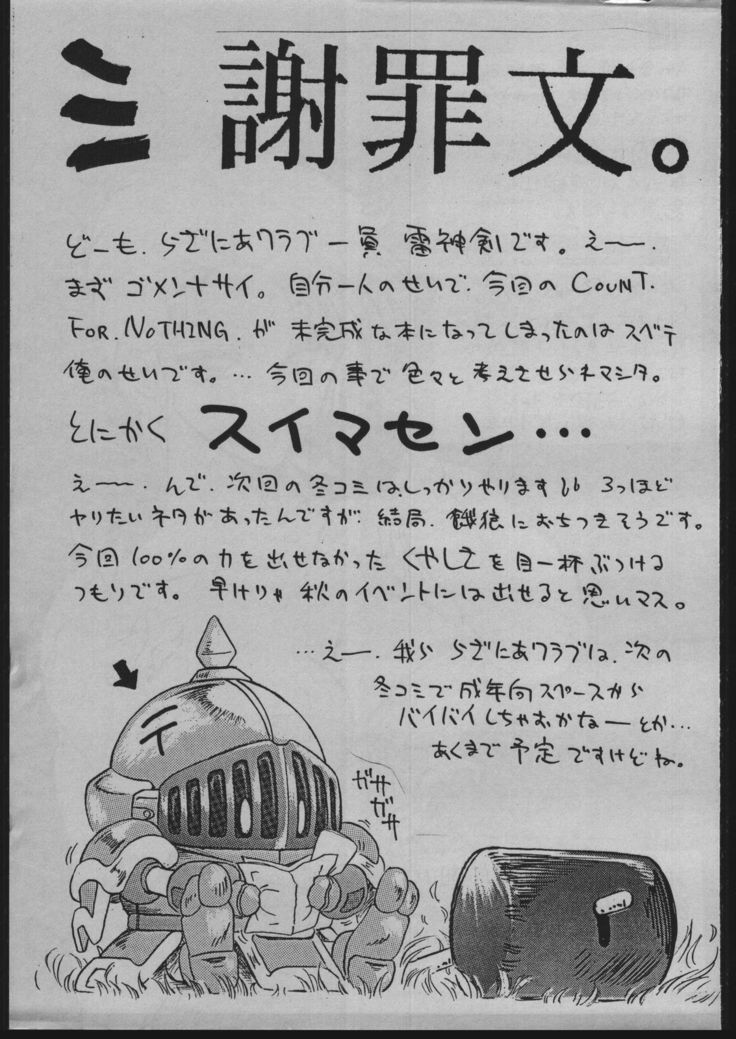 ミ 謝罪文。
どーも、らざにあクラブ一員 雷神剣です。えー〜、
まず ゴメンナサイ。自分一人のせいで、今回の COUNT.
FOR. NOTHING. が 未完成な本になってしまったのは スベテ
俺のせいです。… 今回の事で 色々と 考えさせらネマシタ。
とにかく スイマセン…
えー〜、んで、次回の冬コミは、しっかりやります
3つほど
ヤリたいネタがあったんですが、結局、餓狼におちつきそうです。
今回 100%の力を出せなかった くやしさを目一杯ぶつける
つもりです。 早けりゃ 秋のイベントには出せると 思いマス。
…えー〜、我ら らざにあクラブは、次の
冬コミで 成年向スペースから
バイバイしちゃおかなーとか…
あくまで 予定 ですけどね。
テ
ガサ
ガサ